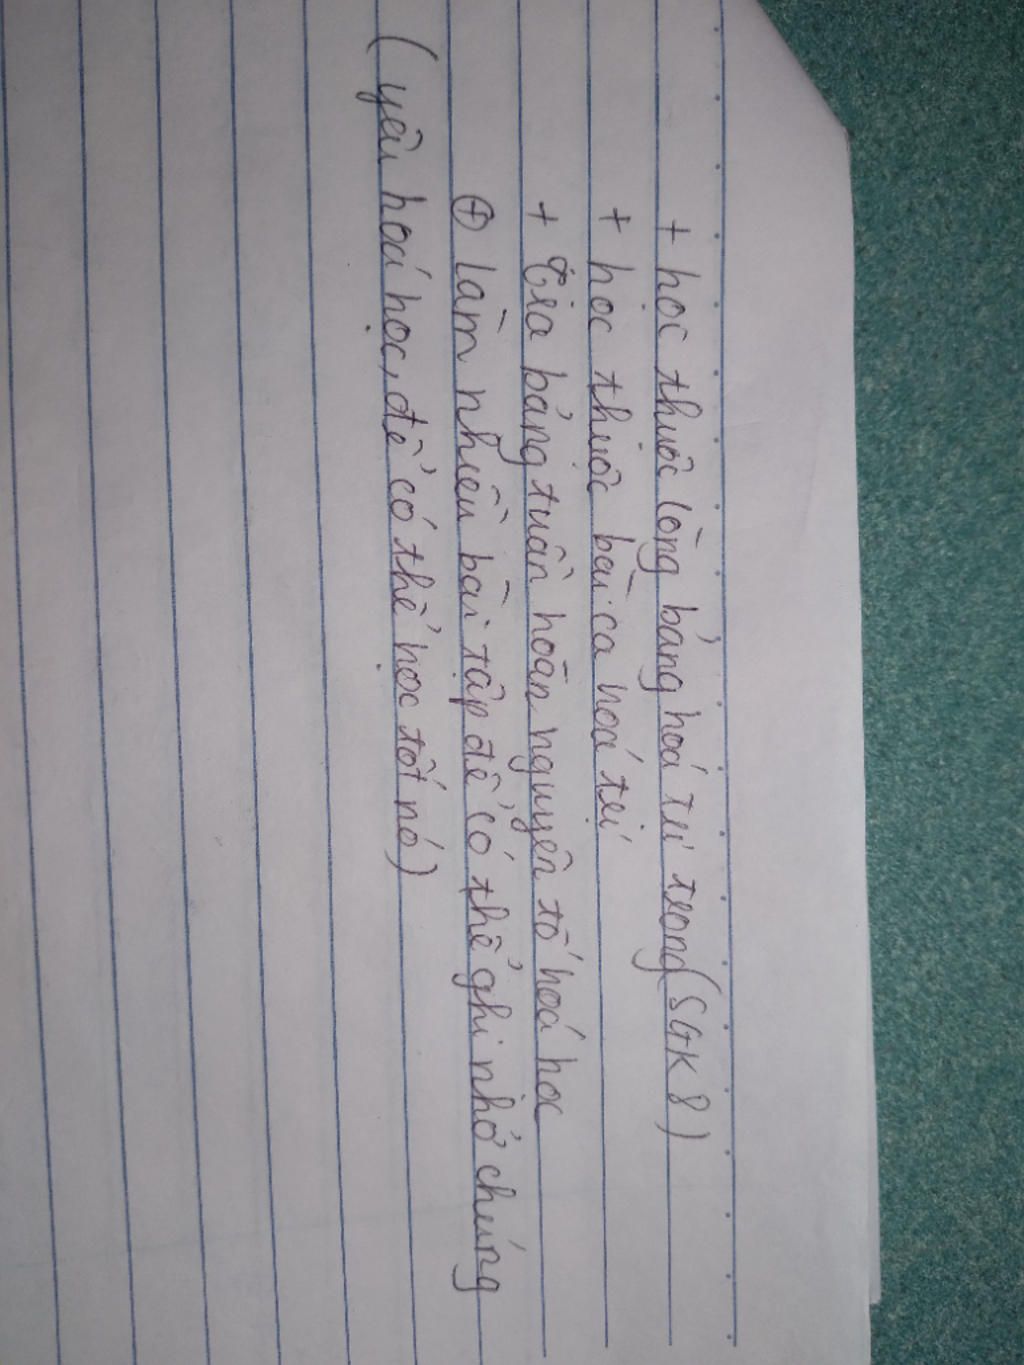 + học thuộc lòng bảng hoá trị trong (SGK 8)
+ học thuộc bài ca hoá trị
+ Tra bảng tuần hoàn nguyên tố hoá học
⊕ làm nhiều bài tập để có thể ghi nhớ chúng
(yêu hoá học, để có thể học tốt nó)